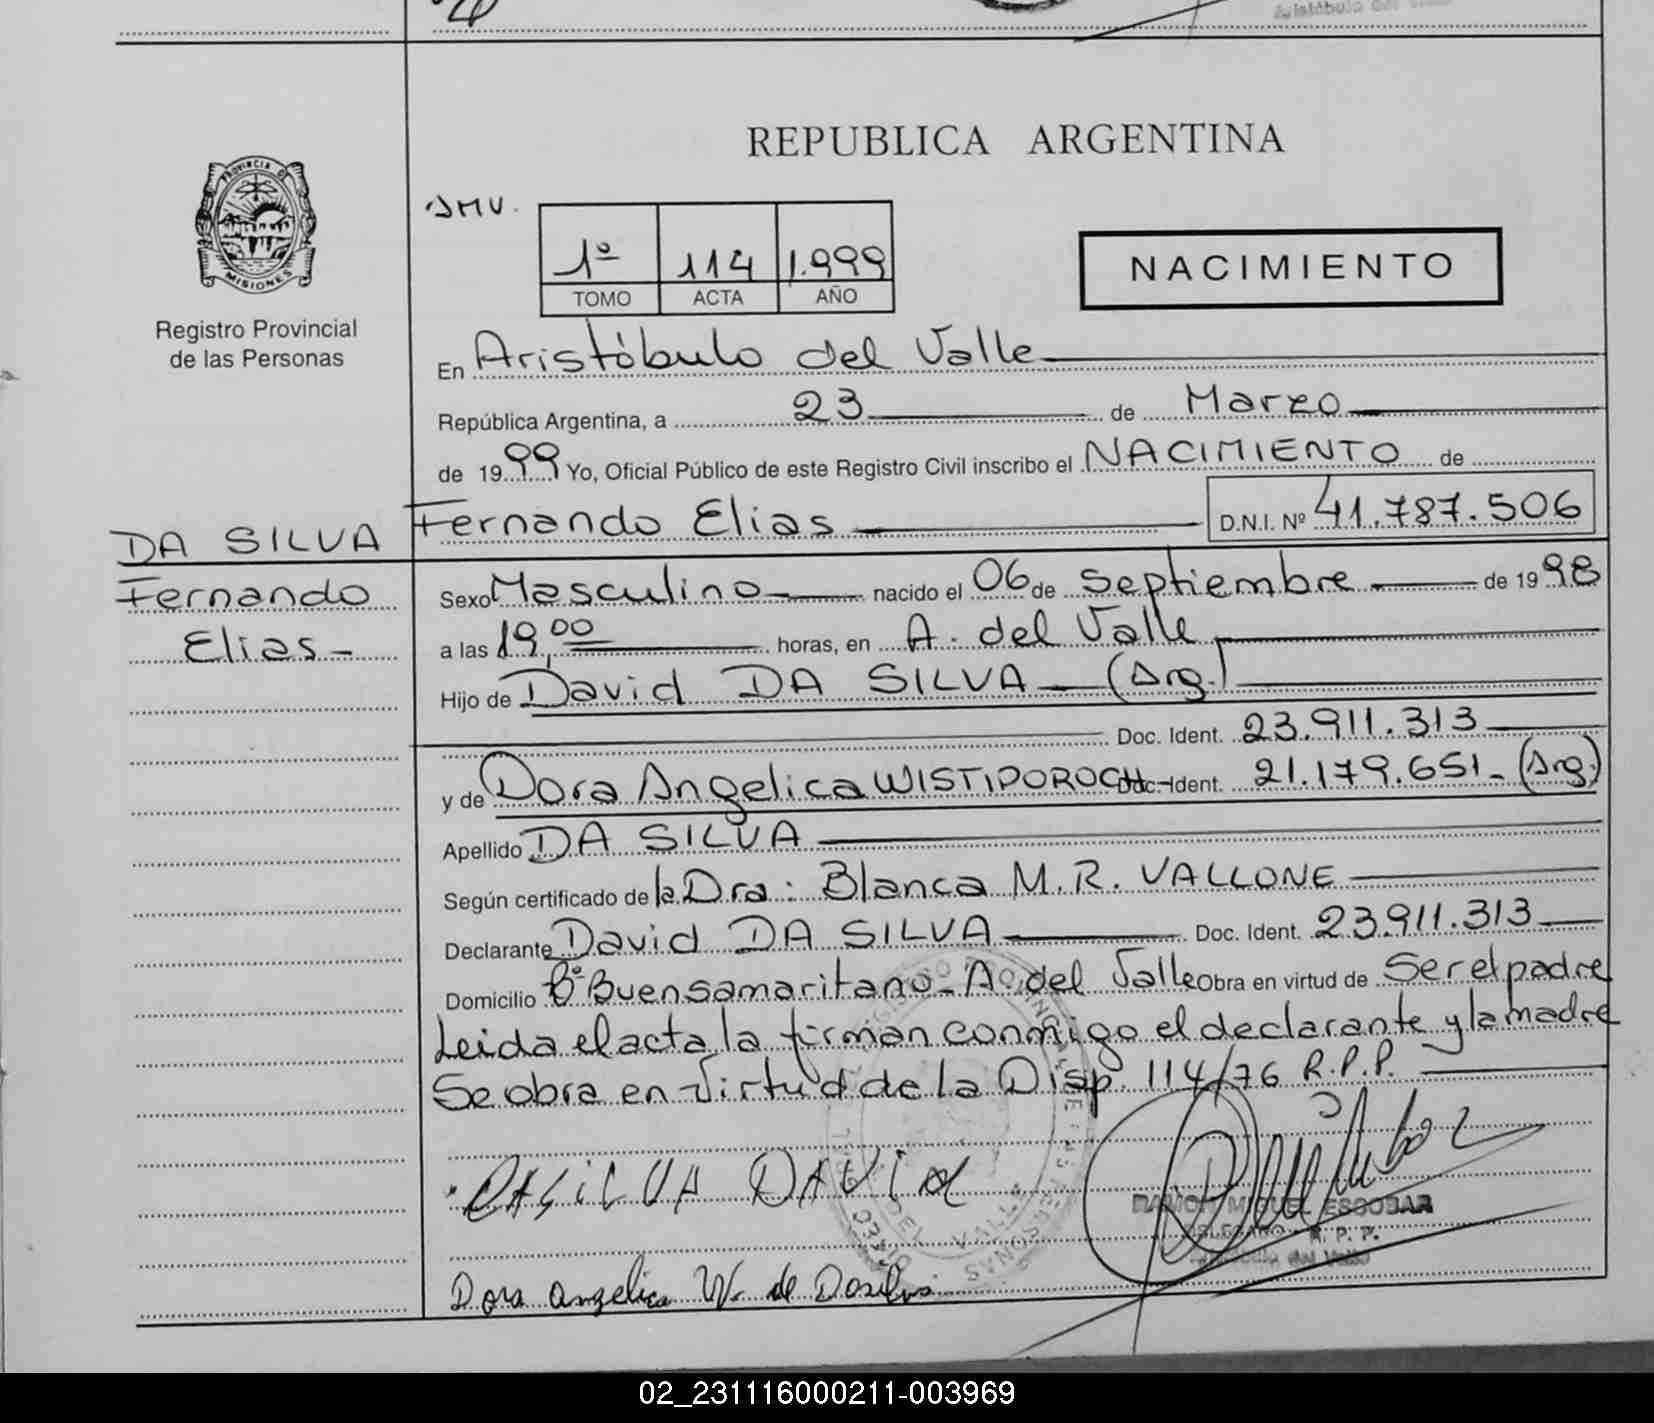 REPUBLICA ARGENTINA
PROVINCIA DE MISIONES
Registro Provincial
de las Personas
JMV.
1º 114 1.999
TOMO ACTA AÑO
NACIMIENTO
En Aristóbulo del Valle
República Argentina, a 23 de Marzo
de 1999 Yo, Oficial Público de este Registro Civil inscribo el NACIMIENTO de
DA SILVA Fernando Elias D.N.I. Nº 41.787.506
Fernando Sexo Masculino nacido el 06 de Septiembre de 1998
Elias - a las 19,00 horas, en A. del Valle
Hijo de David DA SILVA (Arg.)
Doc. Ident. 23.911.313
y de Dora Angelica WISTIPOROCH Doc. Ident. 21.179.651 - (Arg.)
Apellido DA SILVA
Según certificado de la Dra: Blanca M.R. VALLONE
Declarante David DA SILVA Doc. Ident. 23.911.313
Domicilio Bº Buen samaritano - Aº del Valle Obra en virtud de Ser el padre
Leida el acta la firman conmigo el declarante y la madre
Se obra en virtud de la Disp. 114/76 R.P.P.
DASILVA DAVID
RAMON MIGUEL ESCOBAR
DELEGADO - R. P. P.
Aristóbulo del Valle
Dora Angelica W. de Dasilva
02_231116000211-003969